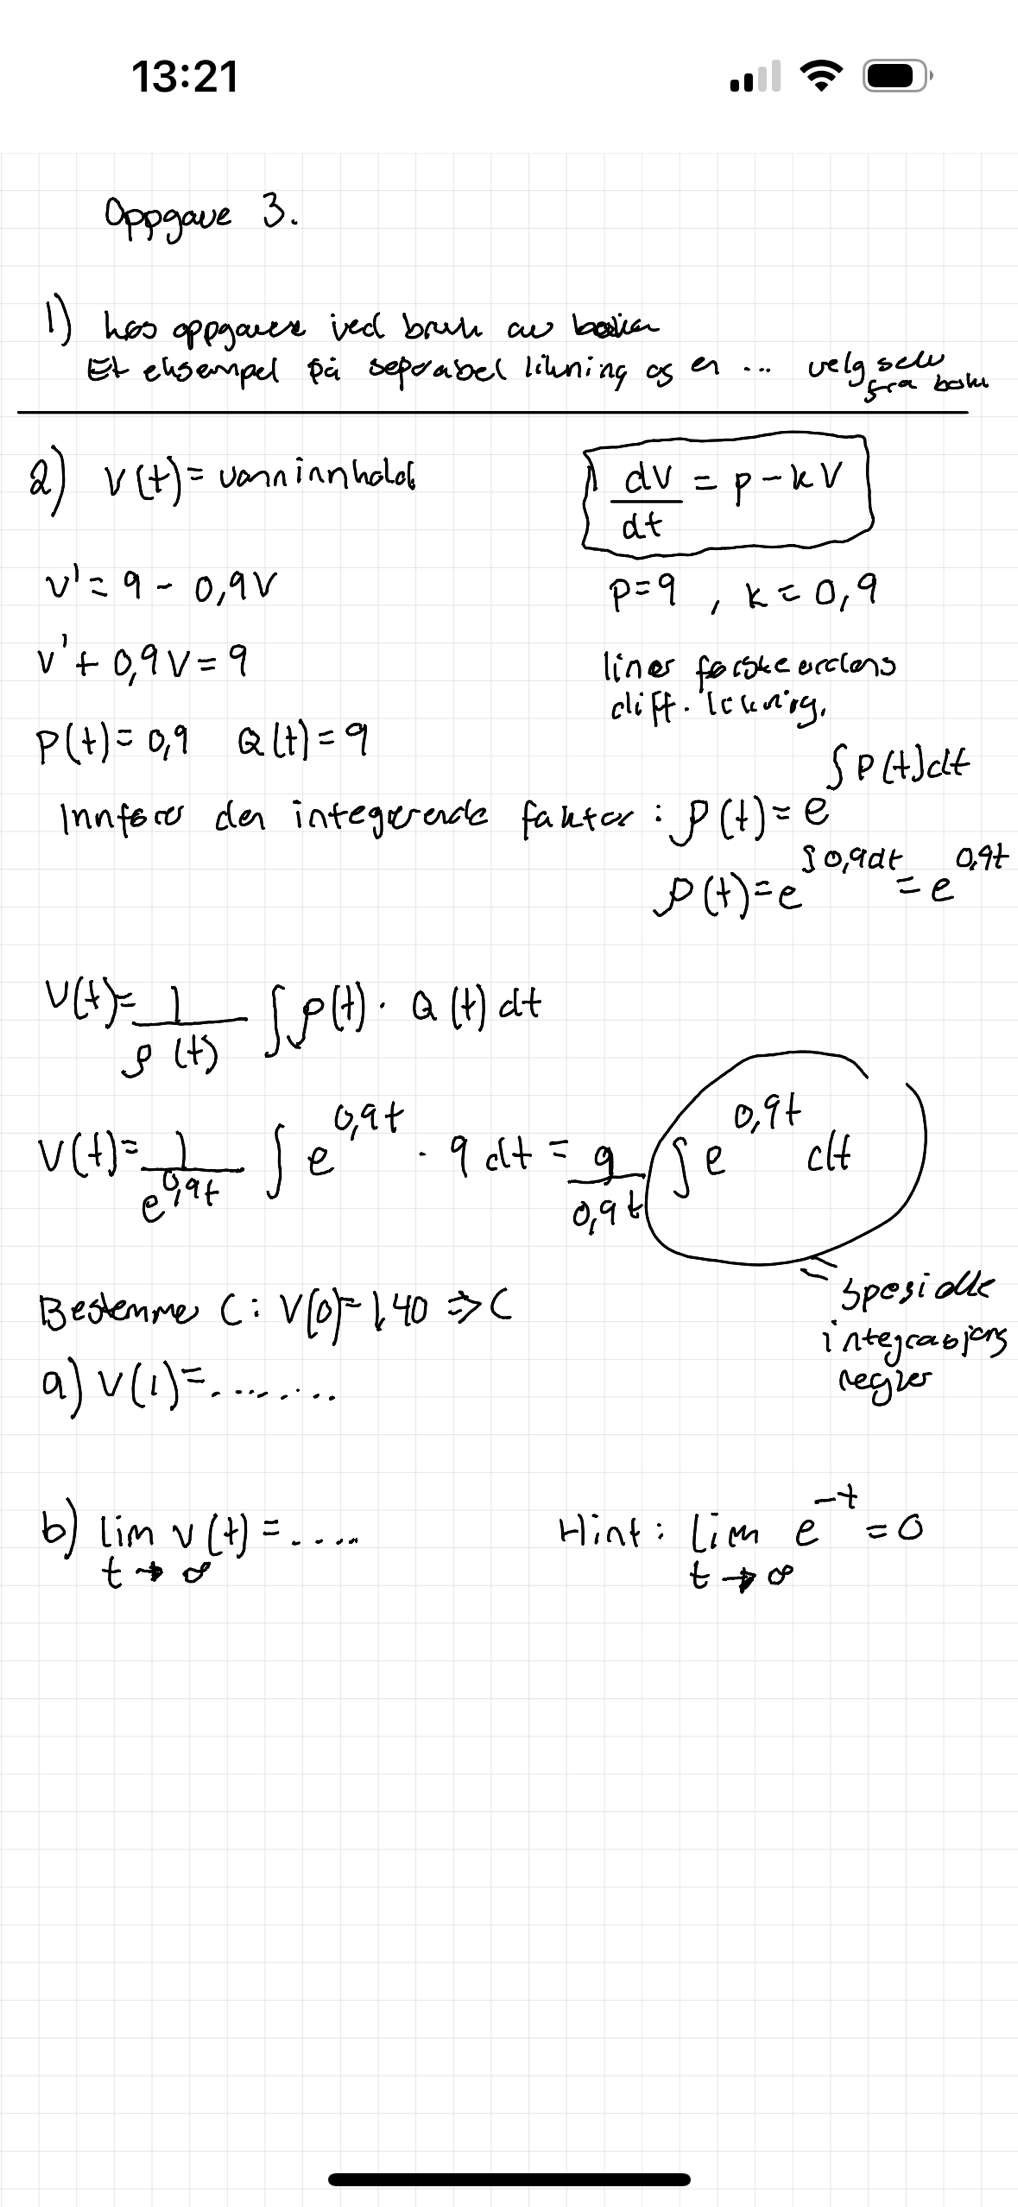 13:21
Oppgave 3.
1) løs oppgaven ved bruk av boken
Et eksempel på seperabel likning og en ... velg selv
fra boken
2) V(t) = vanninnhold
dV/dt = p - kV
V' = 9 - 0,9V
p = 9 , k = 0,9
V' + 0,9V = 9
liner første ordens
diff. likning.
P(t) = 0,9 Q(t) = 9
Innfører den integrerende faktor : ρ(t) = e^∫P(t)dt
ρ(t) = e^∫0,9dt = e^0,9t
V(t) = 1/ρ(t) ∫ρ(t) · Q(t) dt
V(t) = 1/e^0,9t ∫ e^0,9t · 9 dt = 9/0,9t ∫ e^0,9t dt
Spesielle
integrasjons
regler
Bestemme C : V(0) = 1,40 => C
a) V(1) = ........
b) lim V(t) = .....
t → ∞
Hint : lim e^-t = 0
t → ∞